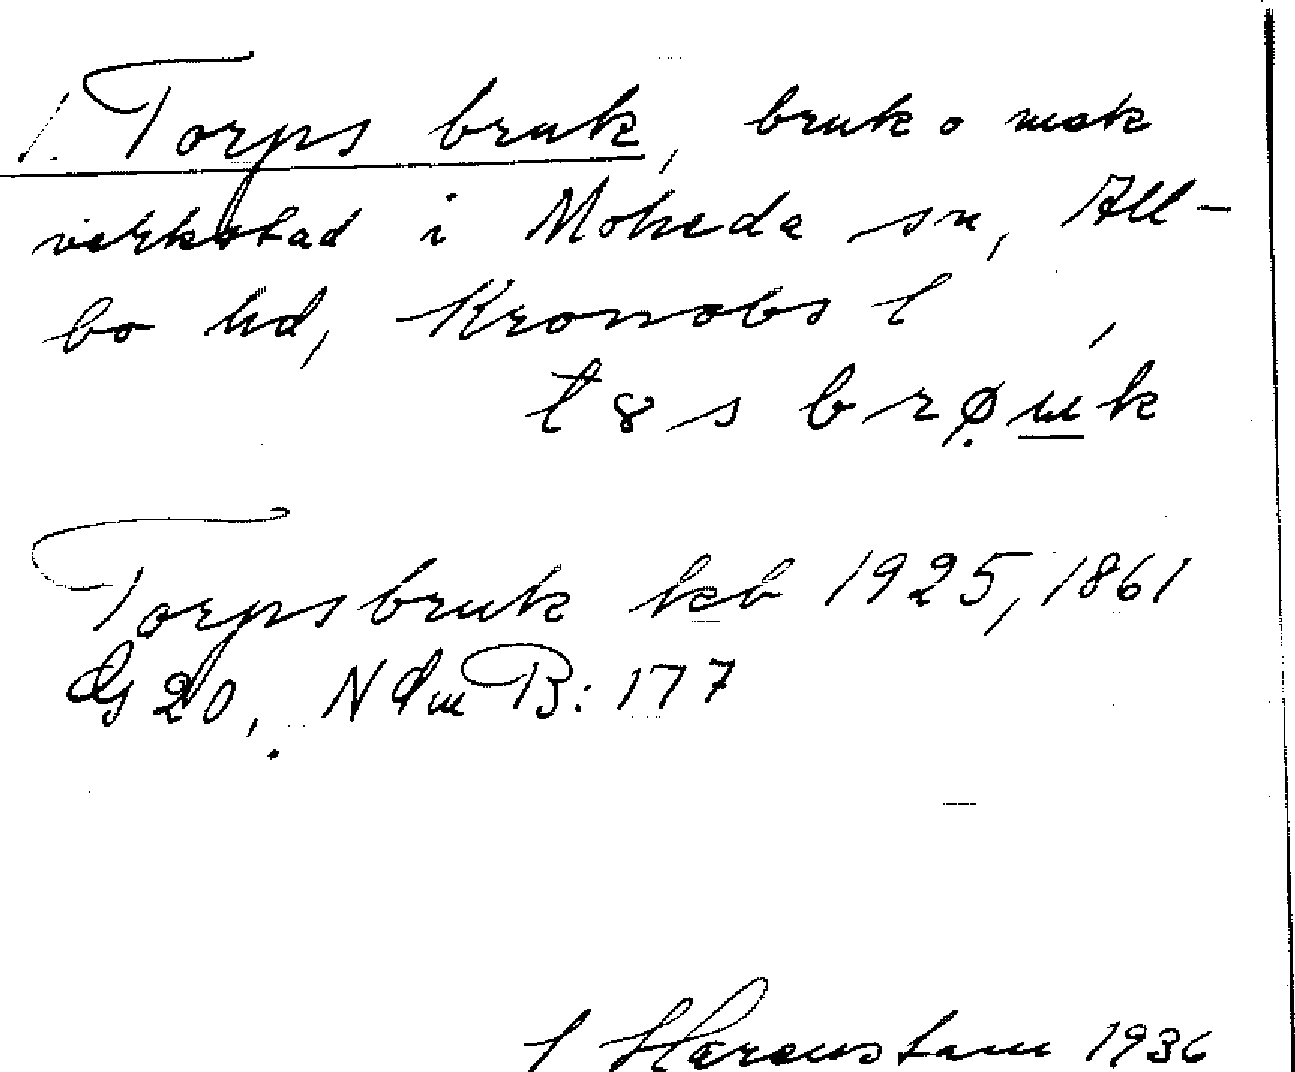 1. Torps bruk, bruk o mek
verkstad i Moheda sn, All-
bo hd, Kronobs l,
t8s brø̣u̲k
Torpsbruk kb 1925, 1861
G 20, Ndm B: 177
Härenstam 1936